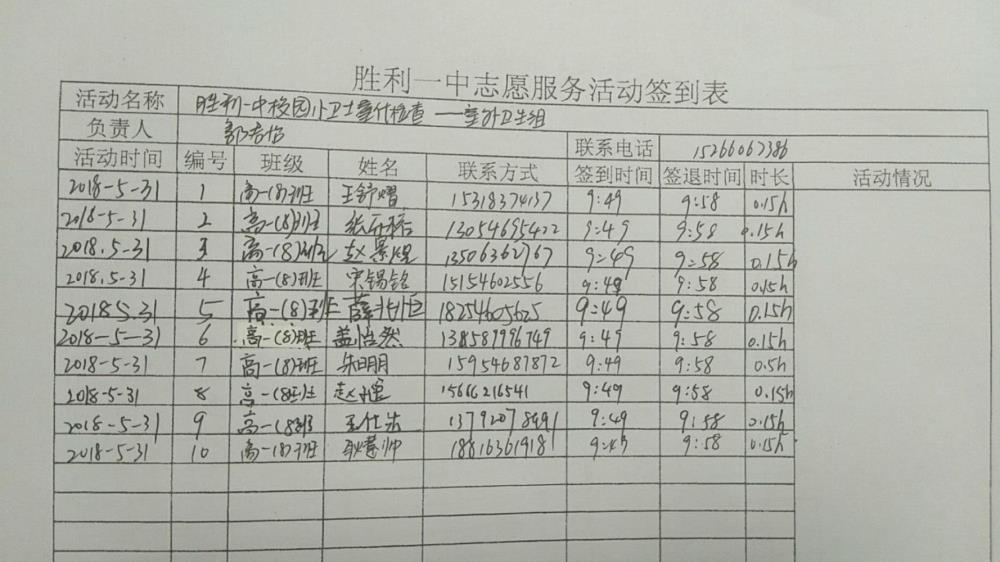 胜利一中志愿服务活动签到表
活动名称 胜利一中校园小卫士量化检查——室外卫生组
负责人 联系电话 15266067386
活动时间 编号 班级 姓名 联系方式 签到时间 签退时间 时长 活动情况
2018-5-31 1 高一(8)班 王舒熠 15318374137 9:49 9:58 0.15h
2018-5-31 2 高一(8)班 13054695422 9:49 9:58 0.15h
2018.5-31 3 高一(8)班 赵景煜 13506362767 9:49 9:58 0.15h
2018.5-31 4 高一(8)班 宋锡铭 15154602556 9:49 9:58 0.15h
2018.5.31 5 高一(8)班 薛兆恒 18254605625 9:49 9:58 0.15h
2018-5-31 6 高一(8)班 盖浩然 138587996749 9:49 9:58 0.15h
2018-5-31 7 高一(8)班 朱明朋 15954687872 9:49 9:58 0.5h
2018-5-31 8 高一(8班 15666216541 9:49 9:58 0.15h
2018-5-31 9 高一(8)班 13792078491 9:49 9:58 0.15h
2018-5-31 10 高一(8)班 耿慧帅 18816361918 9:49 9:58 0.15h